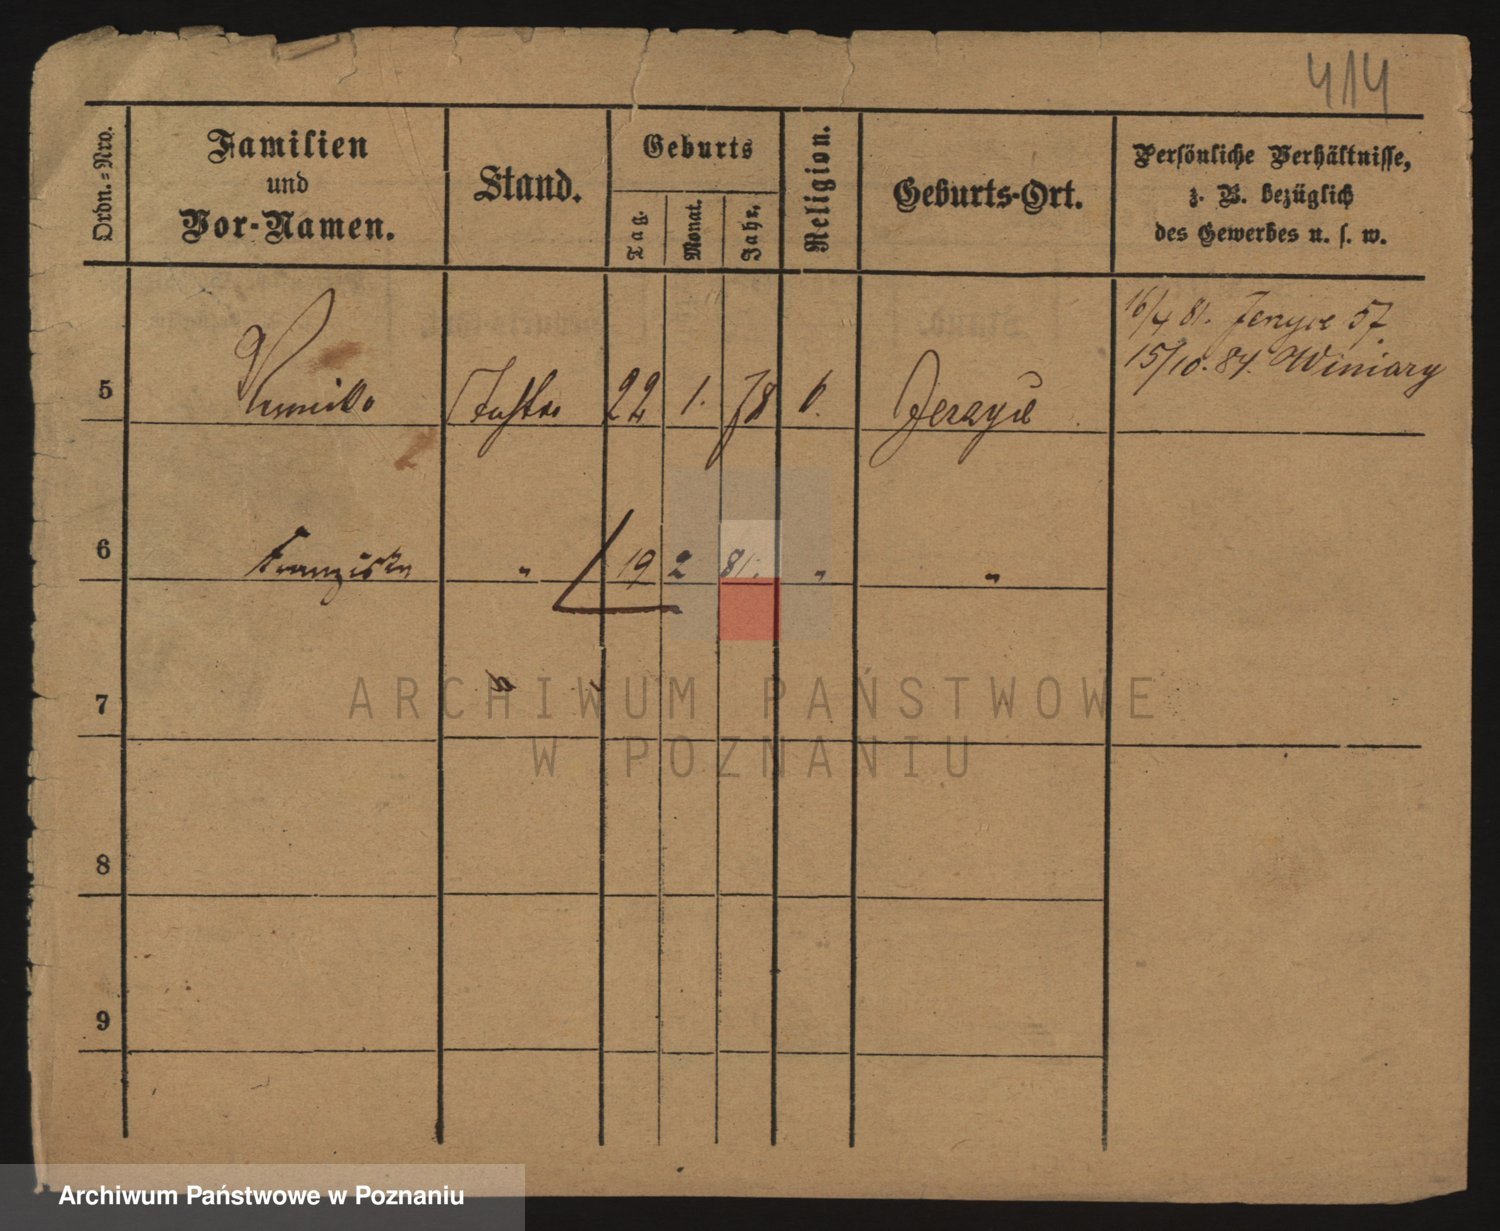 414
Ordn.=Nro.
Familien
und
Vor-Namen.
Stand.
Geburts
Tag.
Monat.
Jahr.
Religion.
Geburts-Ort.
Persönliche Verhältnisse,
z. B. bezüglich
des Gewerbes u. s. w.
16/4 81. Jerzyce 57
15/10. 84. Winiary
5 Tochter 22 1. 78 Jerzyce
6 Franziska " 19 2 81. " "
7 "
ARCHIWUM PAŃSTWOWE
W POZNANIU
8
9
Archiwum Państwowe w Poznaniu